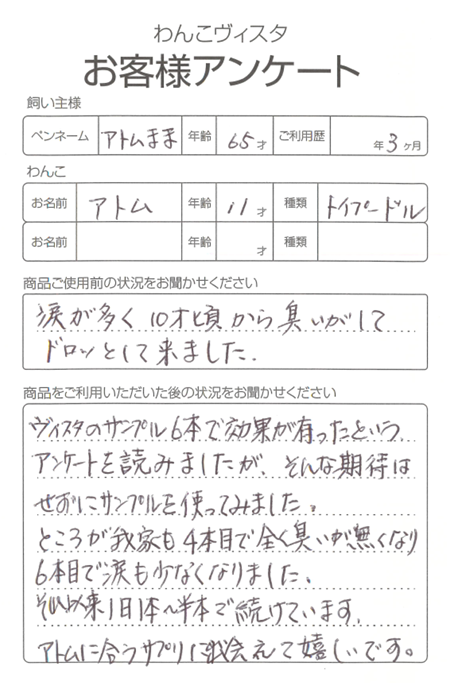 わんこヴィスタ
お客様アンケート
飼い主様
ペンネーム アトムまま 年齢 65才 ご利用歴 年3ヶ月
わんこ
お名前 アトム 年齢 11才 種類 トイプードル
お名前 年齢 才 種類
商品ご使用前の状況をお聞かせください
涙が多く10才頃から臭いがして
ドロッとして来ました.
商品をご利用いただいた後の状況をお聞かせください
ヴィスタのサンプル6本で効果が有ったという
アンケートを読みましたが、そんな期待は
せずにサンプルを使ってみました。
ところが我家も4本目で全く臭いが無くなり
6本目で涙も少なくなりました。
それ以来1日1本〜半本で続けています.
アトムに合うサプリに出会えて嬉しいです。